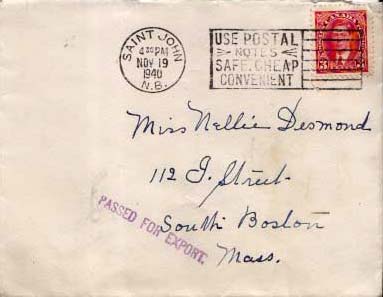 SAINT JOHN
4 30 PM
NOV 19
1940
N.B.
USE POSTAL
NOTES
SAFE. CHEAP
CONVENIENT
CANADA
3 3
Miss Nellie Desmond
112 I. Street
South Boston
Mass.
PASSED FOR EXPORT.